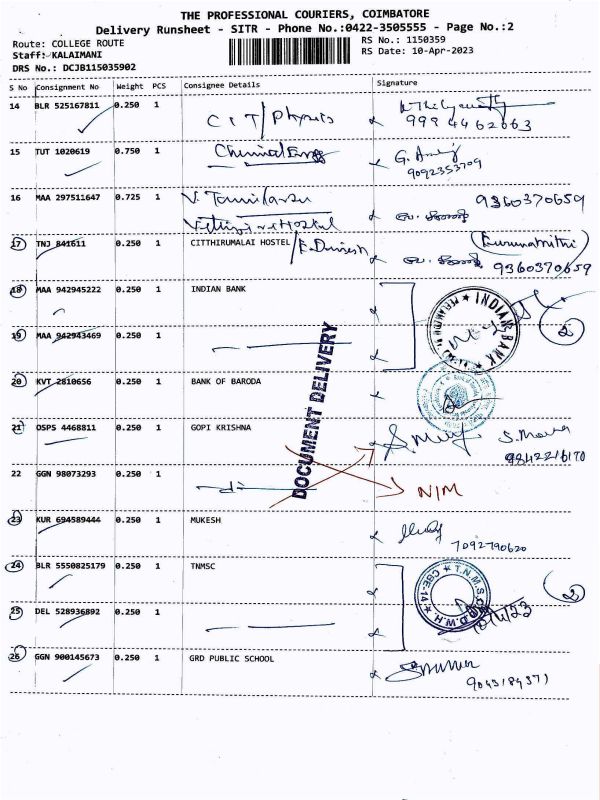 THE PROFESSIONAL COURIERS, COIMBATORE
Delivery Runsheet - SITR - Phone No.:0422-3505555 - Page No.:2
Route: COLLEGE ROUTE
RS No.: 1150359
Staff: KALAIMANI
RS Date: 10-Apr-2023
DRS No.: DCJB115035902
S No Consignment No Weight PCS Consignee Details Signature
14 BLR 525167811 0.250 1 CIT/Physics
9994462663
15 TUT 1020619 0.750 1 Chemical Engg
9092353709
16 MAA 297511647 0.725 1 V. Tamilarasu
Hostel
9360370659
17 TNJ 841611 0.250 1 CITTHIRUMALAI HOSTEL / E.Dinesh
9360370659
18 MAA 942945222 0.250 1 INDIAN BANK
INDIAN BANK
19 MAA 942943469 0.250 1
2
20 KVT 2810656 0.250 1 BANK OF BARODA
DOCUMENT DELIVERY
21 OSPS 4468811 0.250 1 GOPI KRISHNA
9842216170
22 GGN 98073293 0.250 1 N/M
23 KUR 694589444 0.250 1 MUKESH
7092790620
24 BLR 5550825179 0.250 1 TNMSC
CBE-14
2
25 DEL 528936892 0.250 1
26 GGN 900145673 0.250 1 GRD PUBLIC SCHOOL
9043184371